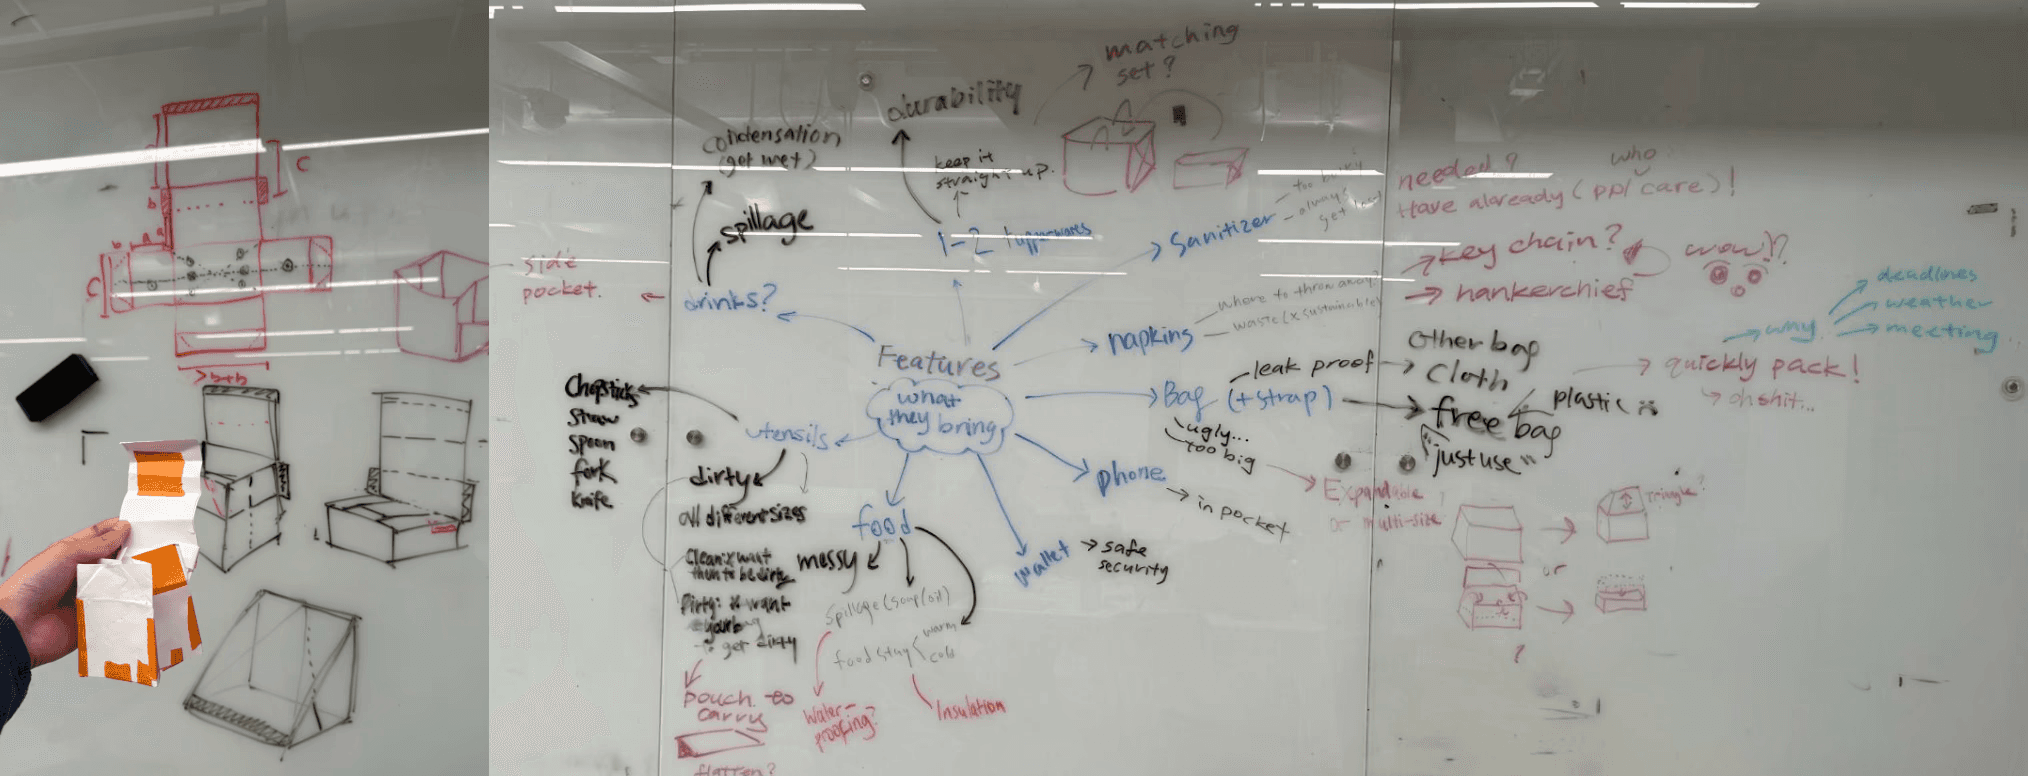 C
b
b
a
a
C
>b+b
side
pocket.
condensation
(get wet)
spillage
drinks?
durability
keep it
straight up.
1-2 tupperwares
matching
set?
Sanitizer
too bulky
always
get
napkins
where to throw away?
waste (x sustainable)
Features
what
they bring
Bag (+strap)
leak proof
ugly...
too big
Other bag
cloth
free bag
plastic
"just use"
quickly pack!
oh shit...
why
deadlines
weather
meeting...
needed?
Have alaready (ppl who care)!
key chain?
hankerchief
wow!?
Expandable
or multi-size?
Triangle?
or
?
phone
in pocket
wallet
safe
security
food
messy
spillage (soup/oil)
food stay
warm
cold
Water-
proofing?
Insulation
utensils
Chopsticks
Straw
Spoon
fork
knife
dirty
all different sizes
Clean: x want
them to be dirty
Dirty: x want
your bag
to get dirty
pouch to
carry
flatten?